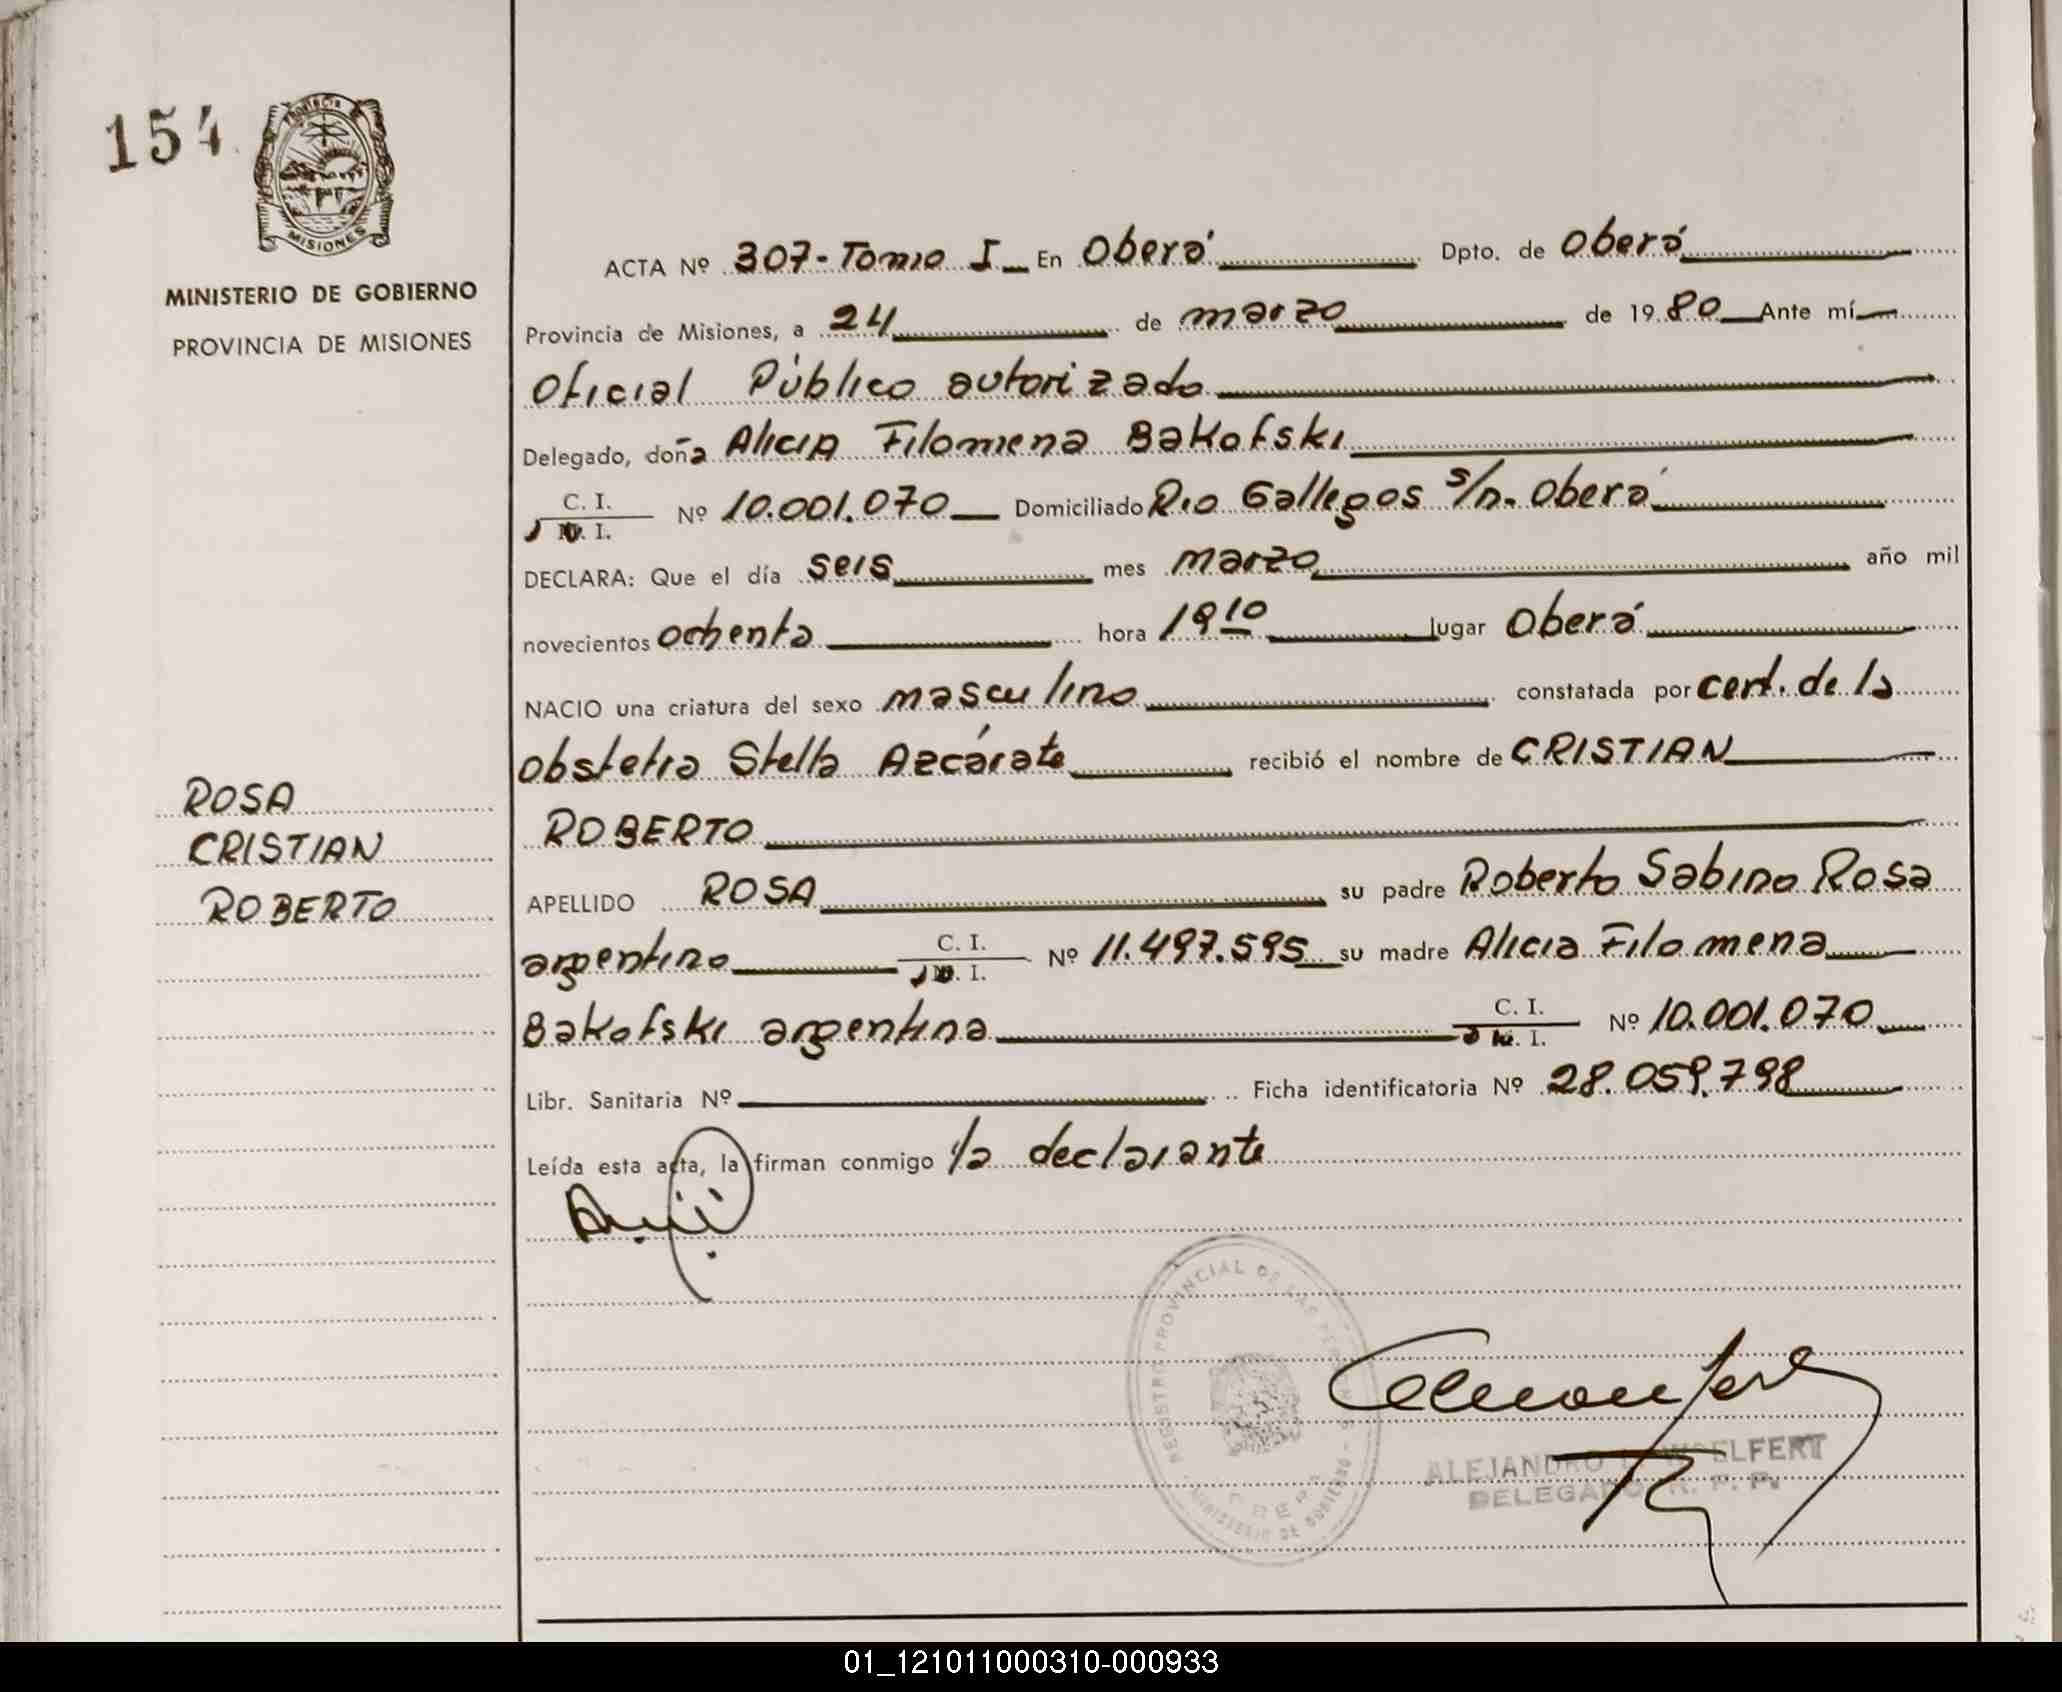 154
Provincia
MISIONES
MINISTERIO DE GOBIERNO
PROVINCIA DE MISIONES
ROSA
CRISTIAN
ROBERTO
ACTA Nº 307-Tomo I En Oberá Dpto. de Oberá
Provincia de Misiones, a 24 de marzo de 1980 Ante mí
Oficial Público autorizado
Delegado, doña Alicia Filomena Bakofski
C. I.
I.
Nº 10.001.070 Domiciliado Rio Gallegos s/n. Oberá
DECLARA: Que el día seis mes marzo año mil
novecientos ochenta hora 19 10 lugar Oberá
NACIO una criatura del sexo masculino constatada por cert. de la
obstetra Stella Azcárate recibió el nombre de CRISTIAN
ROBERTO
APELLIDO ROSA su padre Roberto Sabino Rosa
argentino C. I.
I. Nº 11.497.595 su madre Alicia Filomena
Bakofski argentina C. I.
I. Nº 10.001.070
Libr. Sanitaria Nº Ficha identificatoria Nº 28.059.798
Leída esta acta, la firman conmigo la declarante
REGISTRO PROVINCIAL DE LAS PERSONAS
MINISTERIO DE GOBIERNO
ALEJANDRO WOELFERT
DELEGADO R. P. P.
01_121011000310-000933